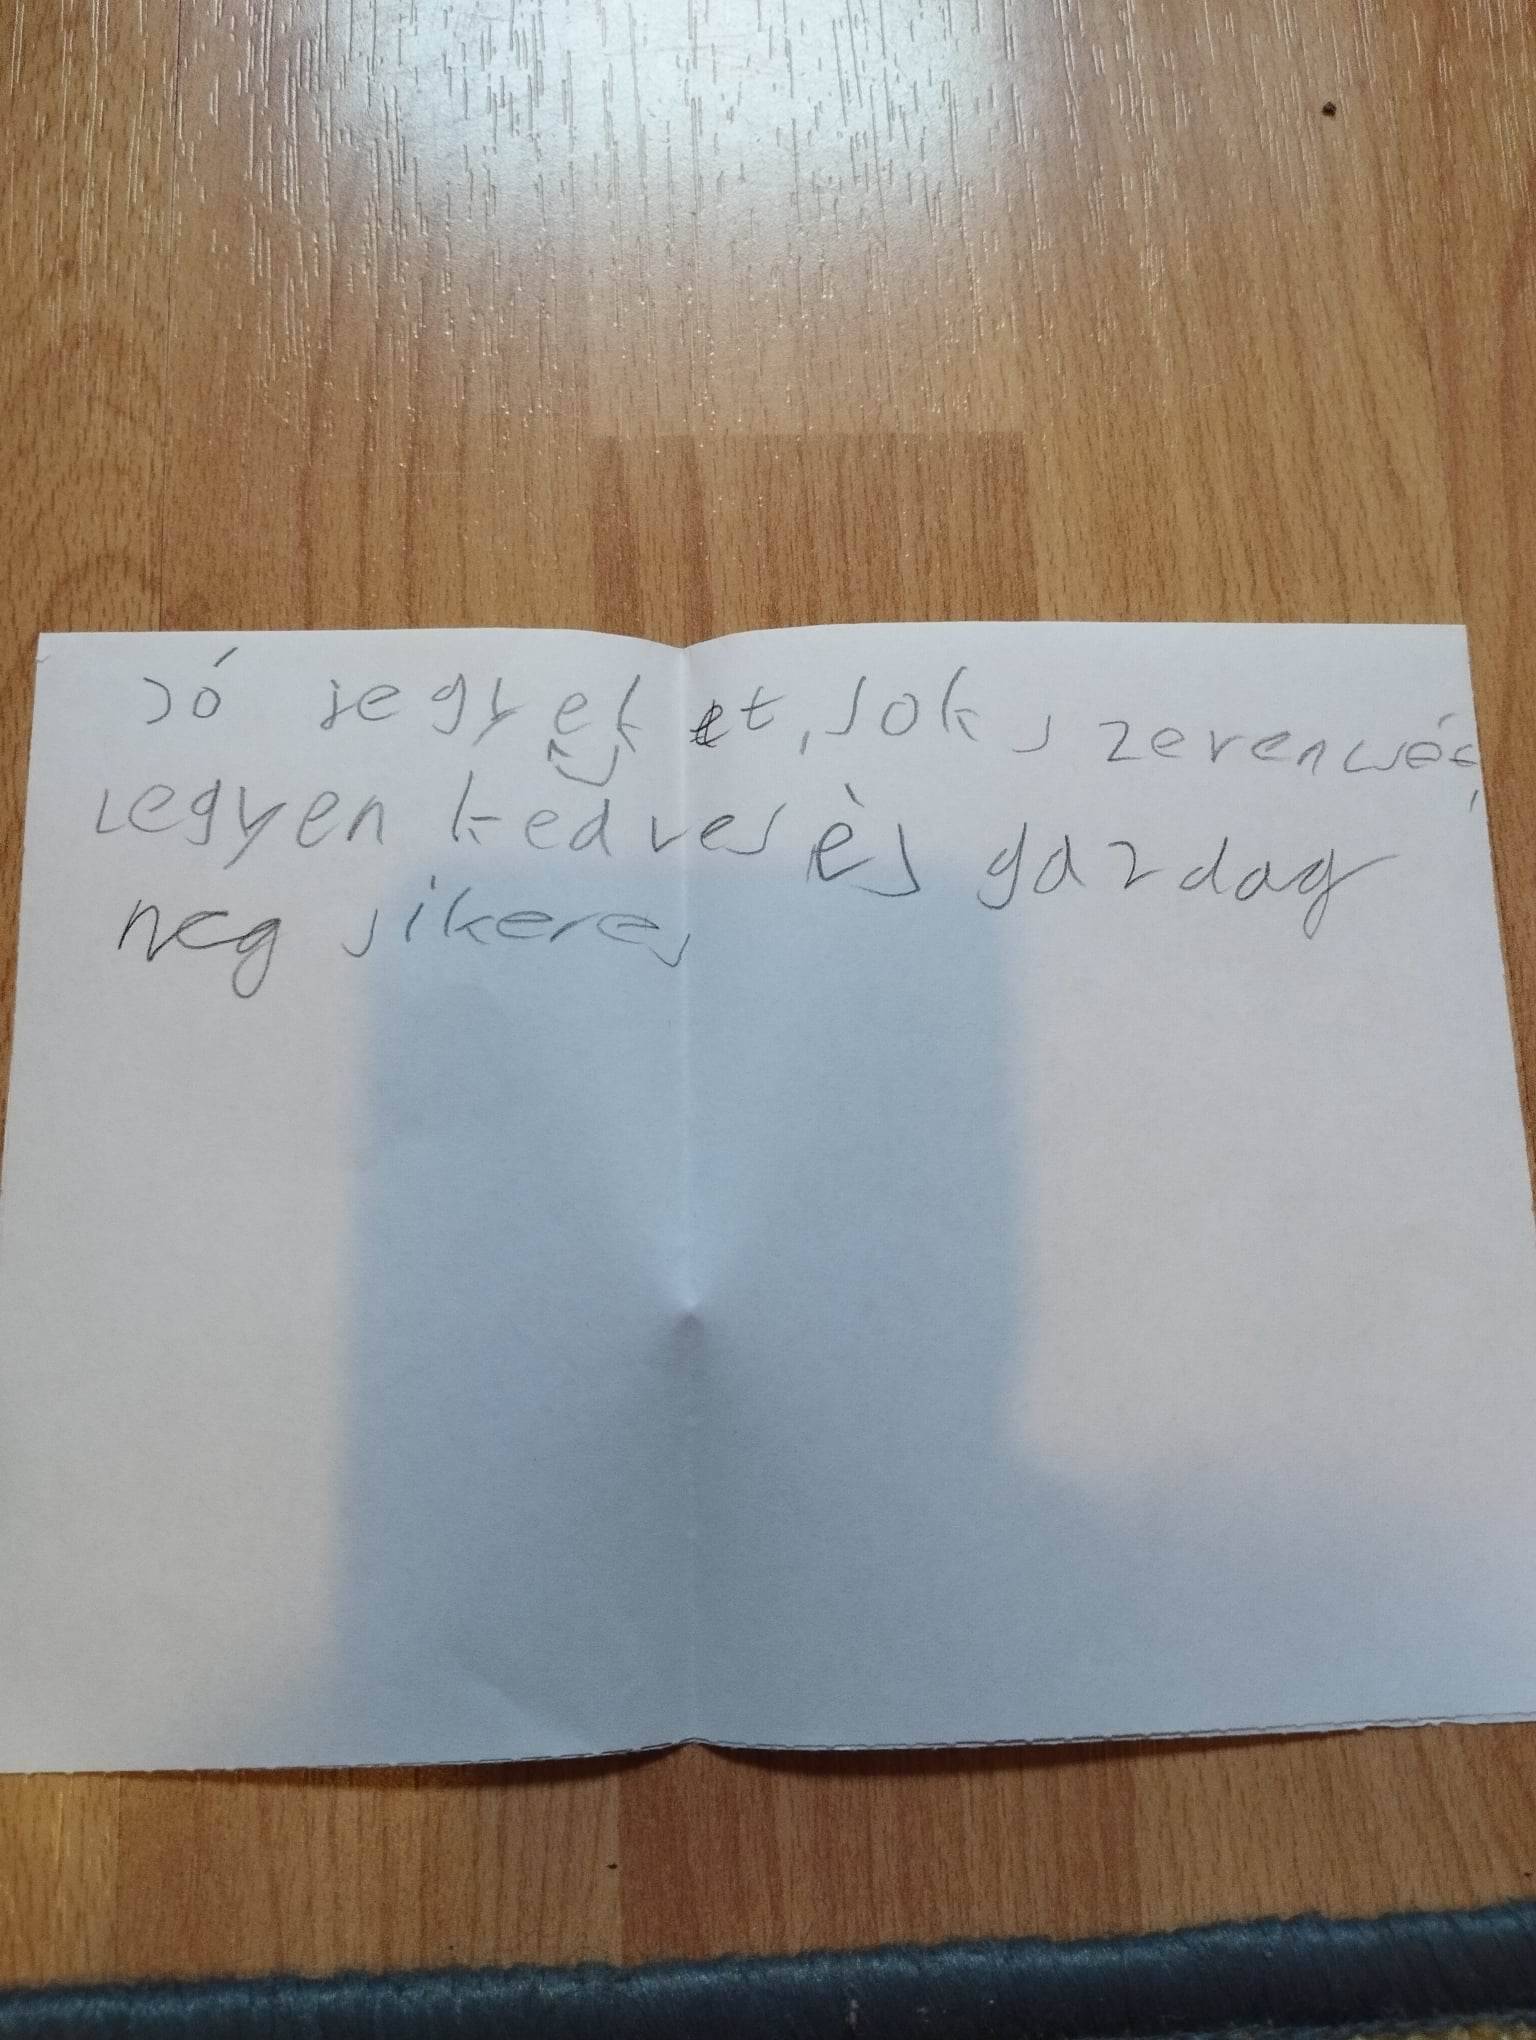 Jó jegyeket, sok szerencsét,
legyen kedves és gazdag
meg sikeres